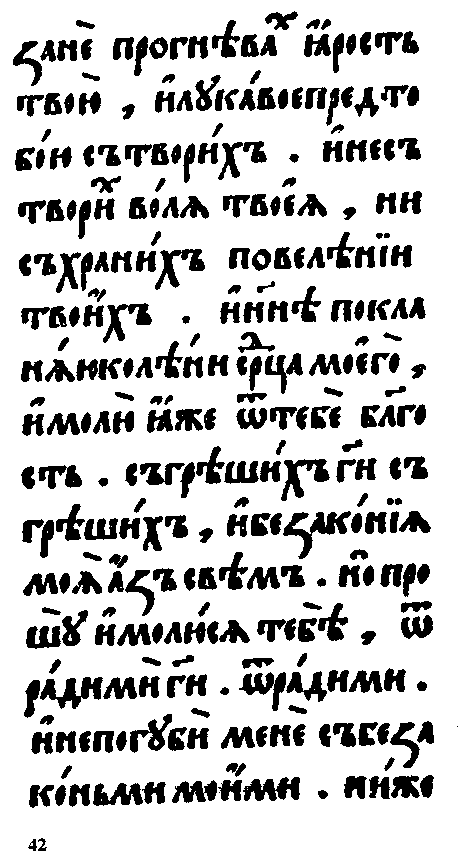 ꙁане̏ прогнѣваⷯ ꙗ҆́рость
твою̀ , и҆лꙋка́воепредто
бо́ю сътвори́хъ . и҆несъ
твориⷯ во́лѧ твоеѧ̀ , ни
съхрани́хъ повелѣнїи
твои҆́хъ . и҆нн҃ѣ покла
нѧ́юколѣ́ни срⷣца мое҆го̀ ,
и҆молю̀ ꙗ҆́же ѿтебѐ бл҃го
сть . съгрѣши́хъ г҃и съ
грѣши́хъ , и҆беꙁако́нїѧ
моѧ̀ а҆́ꙁъ свѣмъ . нѡ про
шꙋ̀ и҆молю́сѧ тебѣ̀ , ѿ
ра́димѝ г҃и . ѿра́дими .
и҆непогꙋбѝ менѐ събеꙁа
ко́ньми мои҆́ми . ни́же
42